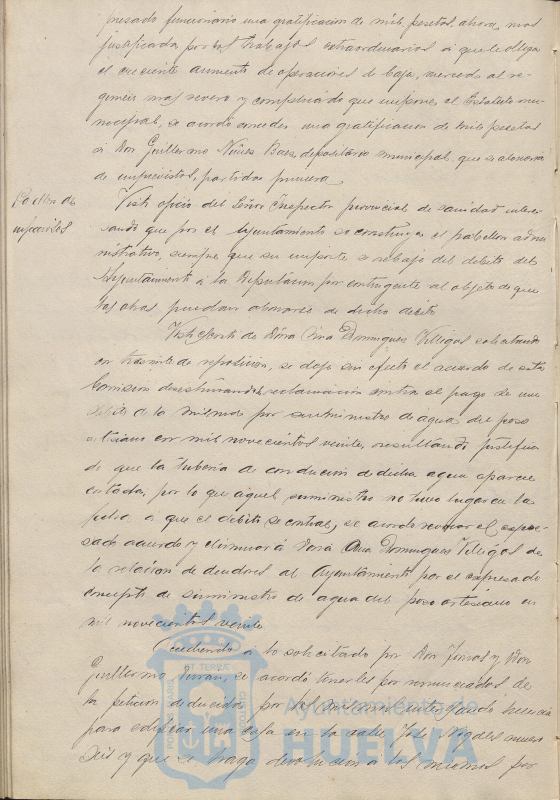 presado funcionario una gratificación de mil pesetas, ahora, mas
justificada por los trabajos extraordinarios a que le obliga
el creciente aumento de operaciones de baja, merced al re-
gimen mas severo y complicado que impone el Estatuto mu-
nicipal, se acordó conceder una gratificacion de mil pesetas
a Don Guillermo Núñez Baez, depositario municipal, que se abonaran
de imprevistos, partida primera
Visto oficio del Señor Inspector provincial de sanidad intere-
sando que por el Ayuntamiento se construya el pabellon admi-
nistrativo, siempre que su importe se rebaje del debito del
Ayuntamiento a la Diputacion por contingente al objeto de que
las obras puedan abonarse de dicho debito
Visto escrito de Dóna Ana Dominguez Villegas solicitando
en tramite de reposicion, se deje sin efecto el acuerdo de esta
Comision desestimando reclamación contra el pago de un
debito de la misma por suministro de agua del pozo
artesiano en mil novecientos veinte, resultando justifica-
do que la tuberia de conduccion de dicha agua aparece
cortada, por lo que aquel suministro no tuvo lugar en la
fecha a que el debito se contrae, se acordó revocar el expre-
sado acuerdo y eliminar á Doña Ana Dominguez Villegas de
la relacion de deudores al Ayuntamiento por el expresado
concepto de suministro de agua del pozo artesiano en
mil novecientos veinte
Accediendo a lo solicitado por Don Tomas y Don
Guillermo Duran, se acordó tenerles por renunciados de
la peticion deducida por los mismos interesando licencia
para edificar una casa en la calle José Nogales numero
seis y que se haga devolucion a los mismos por
Pabellon de
infecciosos
PORTUS MARIS
ET TERRAE
CUSTODIA
Ayuntamiento de
HUELVA